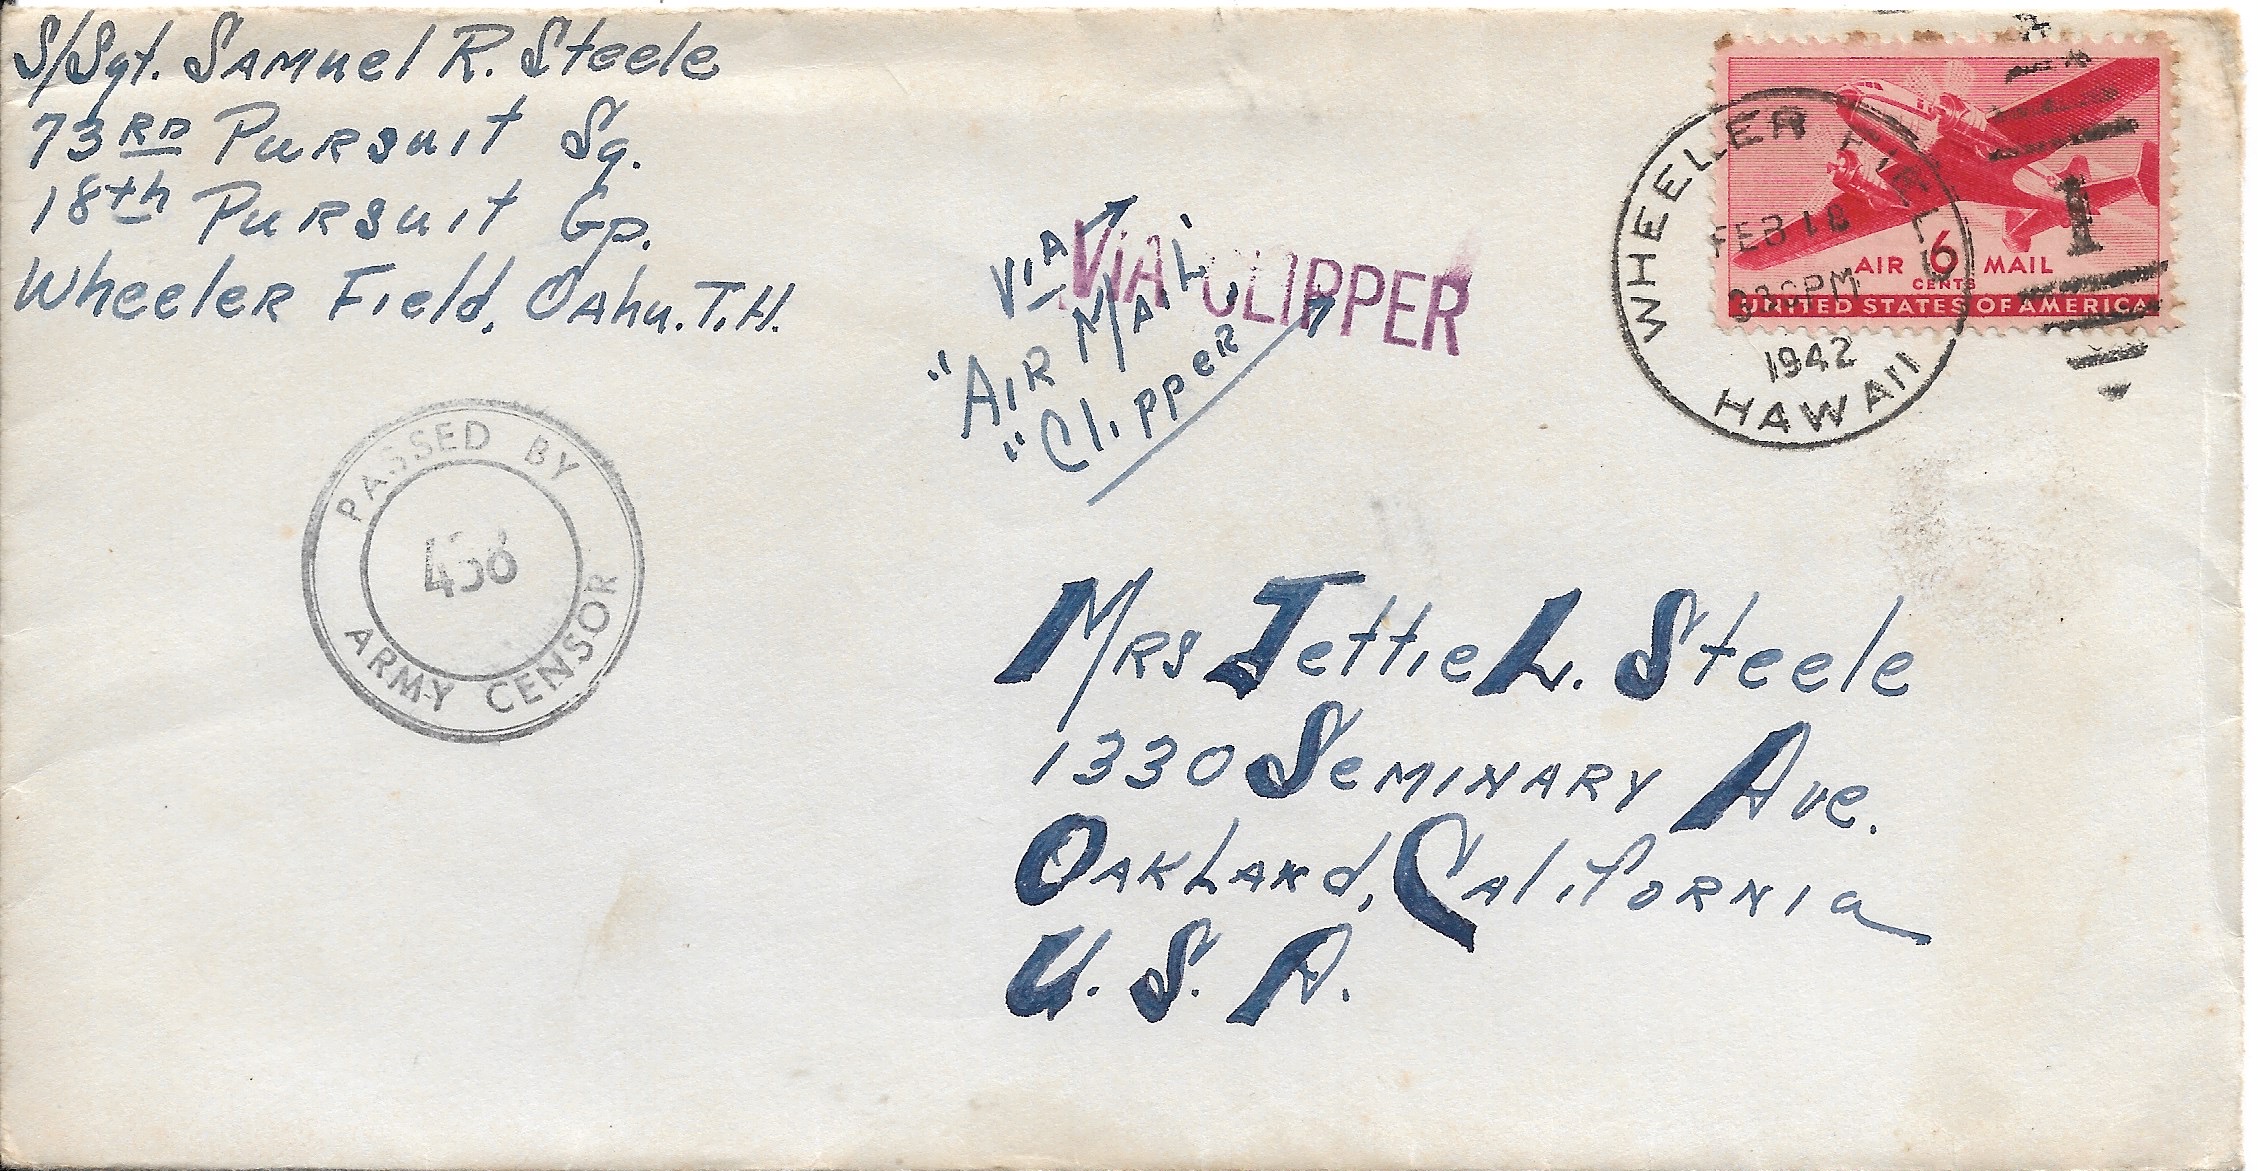 S/Sgt. Samuel R. Steele
73RD Pursuit Sq.
18th Pursuit Gp.
Wheeler Field, Oahu. T.H.
VIA
"AIR MAIL"
"Clipper"
VIA CLIPPER
WHEELER FIELD
FEB 18
PM
1942
HAWAII
1
AIR 6 MAIL
CENTS
UNITED STATES OF AMERICA
PASSED BY
ARMY CENSOR
Mrs Jettie L. Steele
1330 Seminary Ave.
Oakland, California
U.S.A.